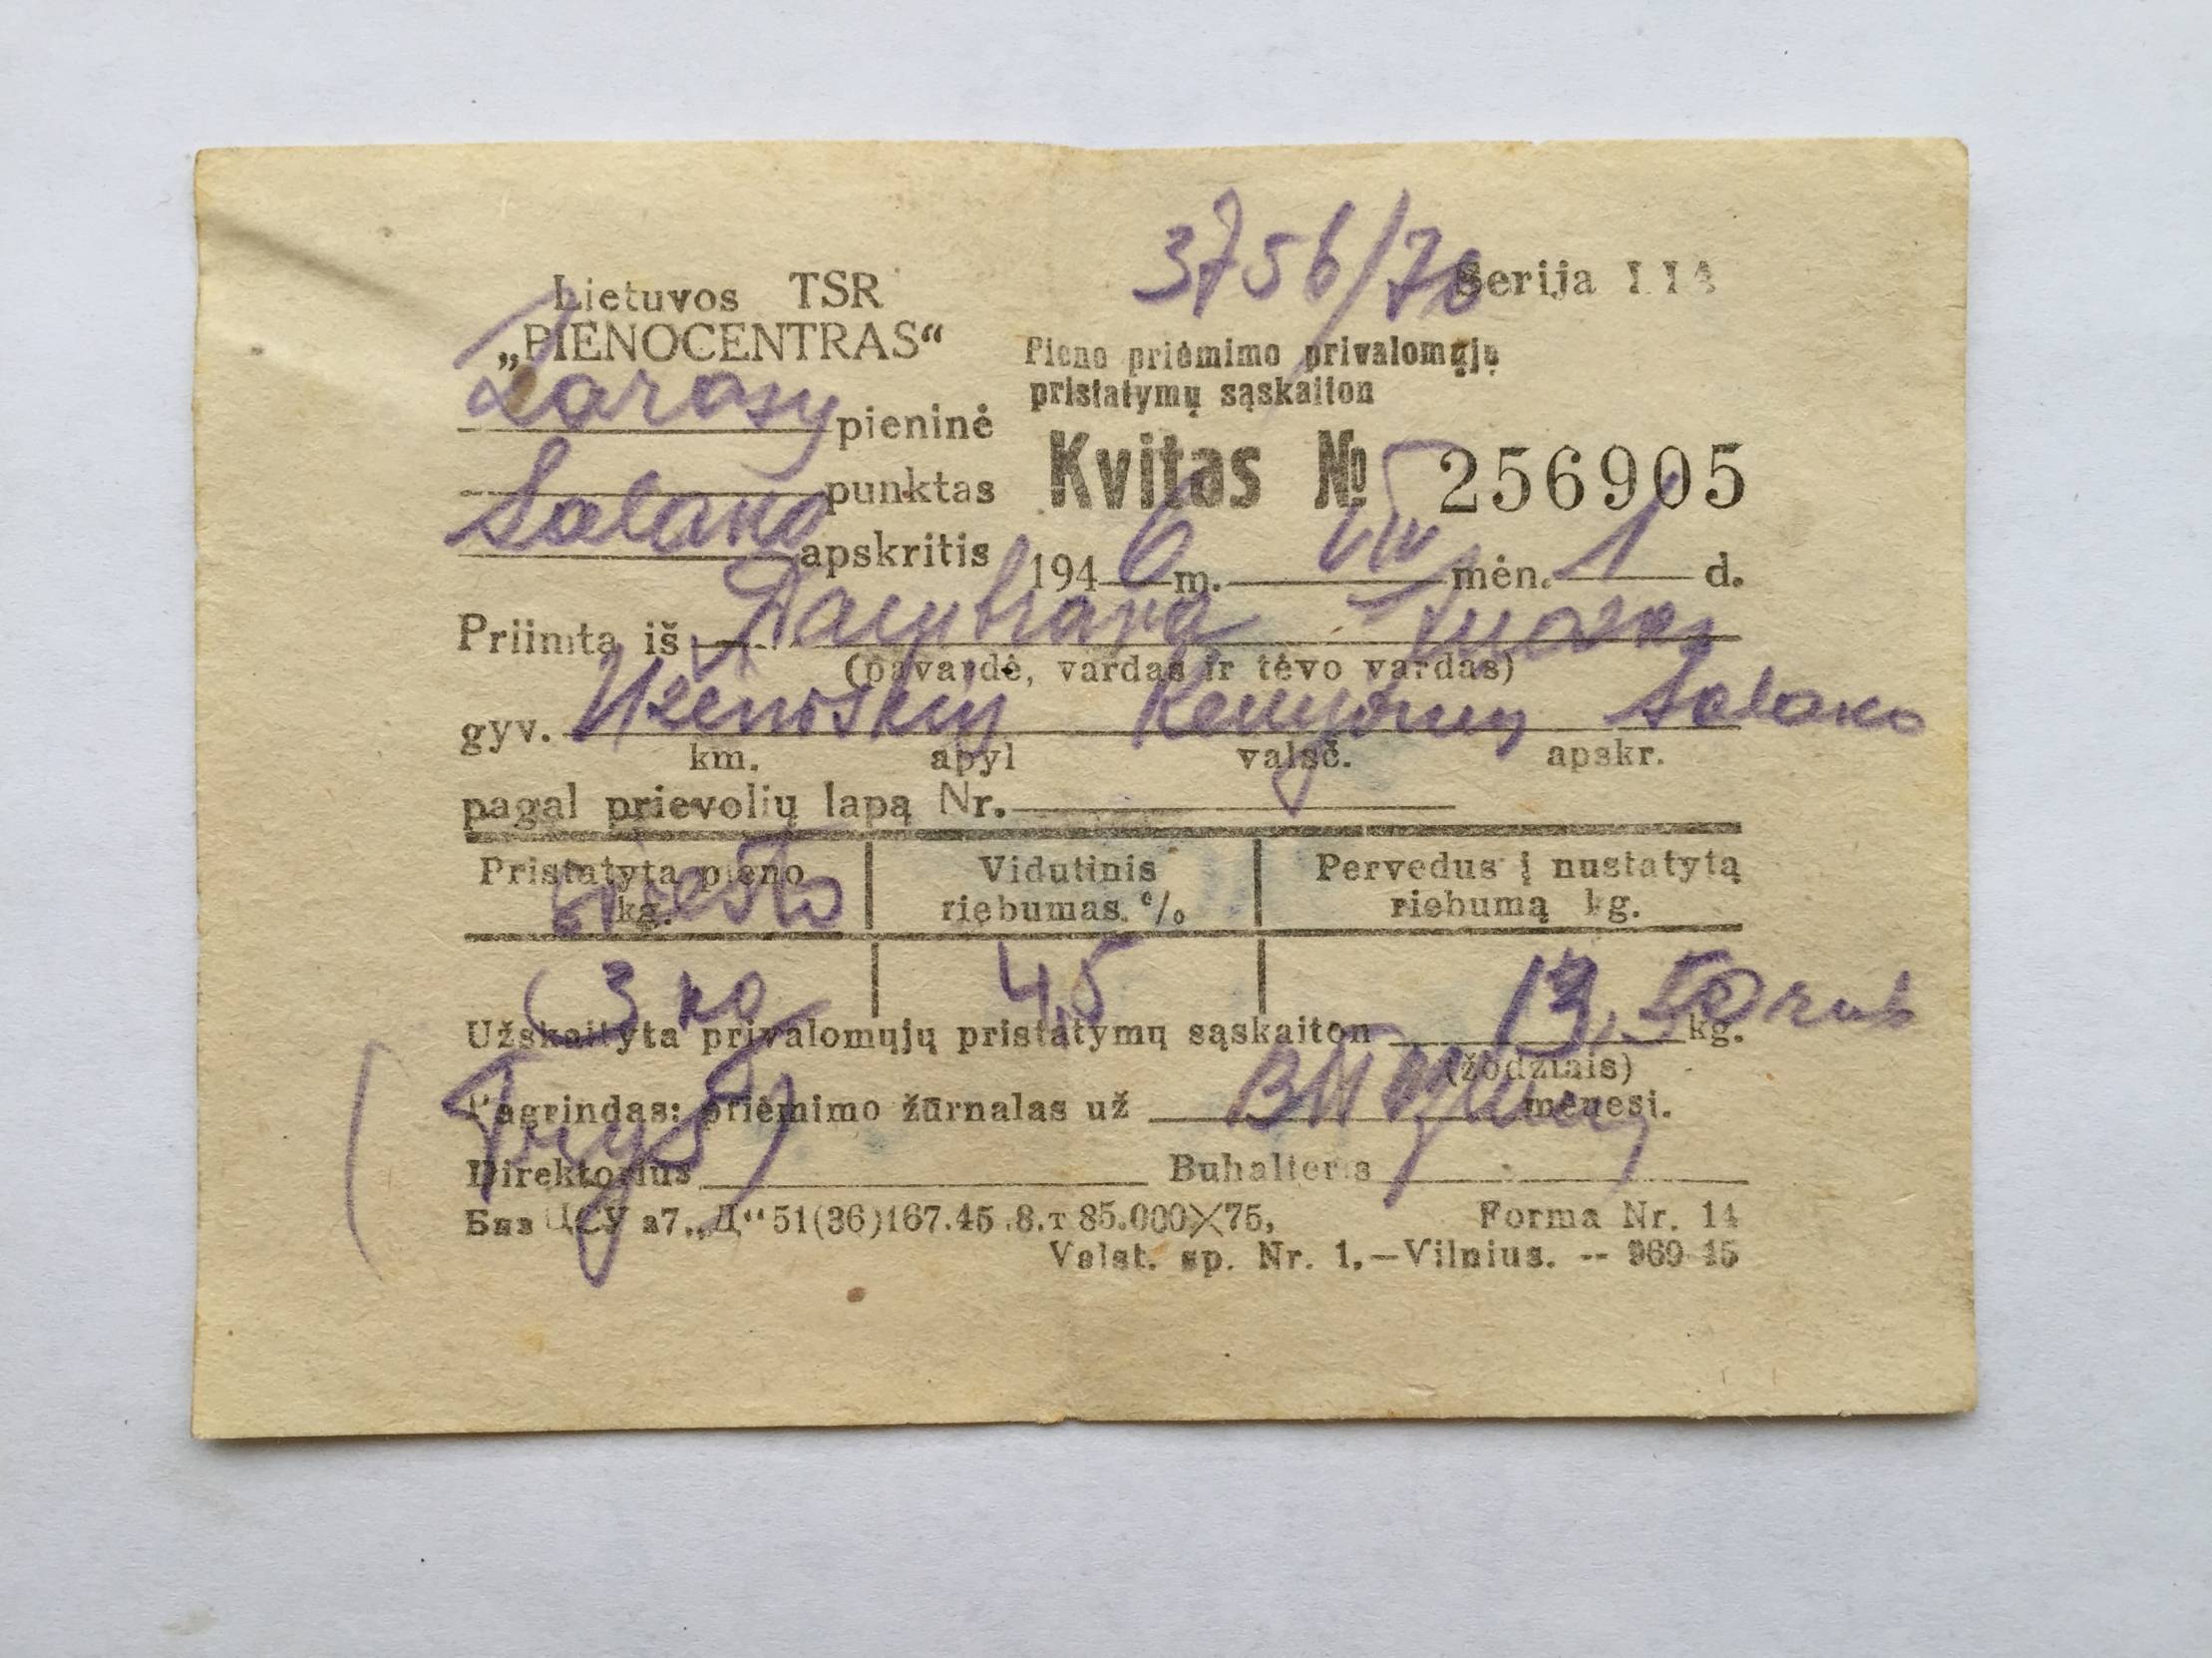 3756/70
Lietuvos TSR
„PIENOCENTRAS“
Serija
Pieno priėmimo privalomųjų
pristatymų sąskaiton
Zarasų pieninė
punktas
Salako apskritis
Kvitas № 256905
1946 m. VIII mėn. 1 d.
Priimta iš Dambrava
(pavardė, vardas ir tėvo vardas)
gyv. Salako
km. apyl valsč. apskr.
pagal prievolių lapą Nr.
Pristatyta pieno kg. Vidutinis riebumas % Pervedus į nustatytą riebumą kg.
sviesto
(3 kg 4,5 13,50 rub
Užskaityta privalomųjų pristatymų sąskaiton kg.
(žodžiais)
(Trys)
Pagrindas: priėmimo žūrnalas už mėnesi.
Direktorius Buhalteris
51(36)167.45 .8.т 85.000X75,
Forma Nr. 14
Valst. sp. Nr. 1.—Vilnius. --